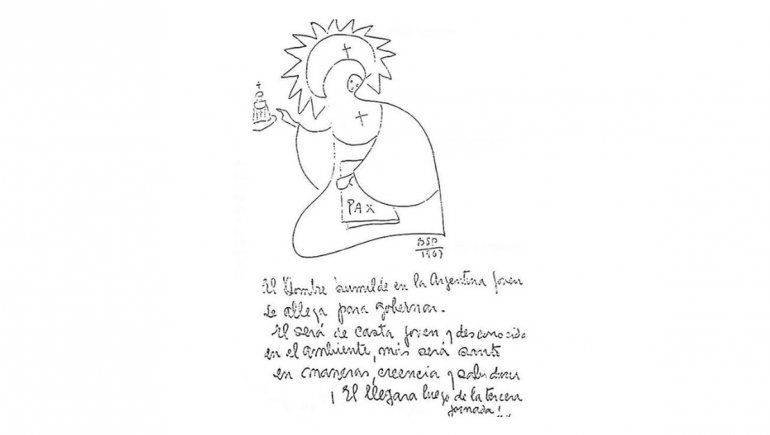 PAX
BSP
1937
El Hombre humilde en la Argentina joven
se allega para gobernar.
El será de casta joven y desconocida
en el ambiente, más será santo
en maneras, creencia y
¡ El llegara luego de la tercera
jornada!..